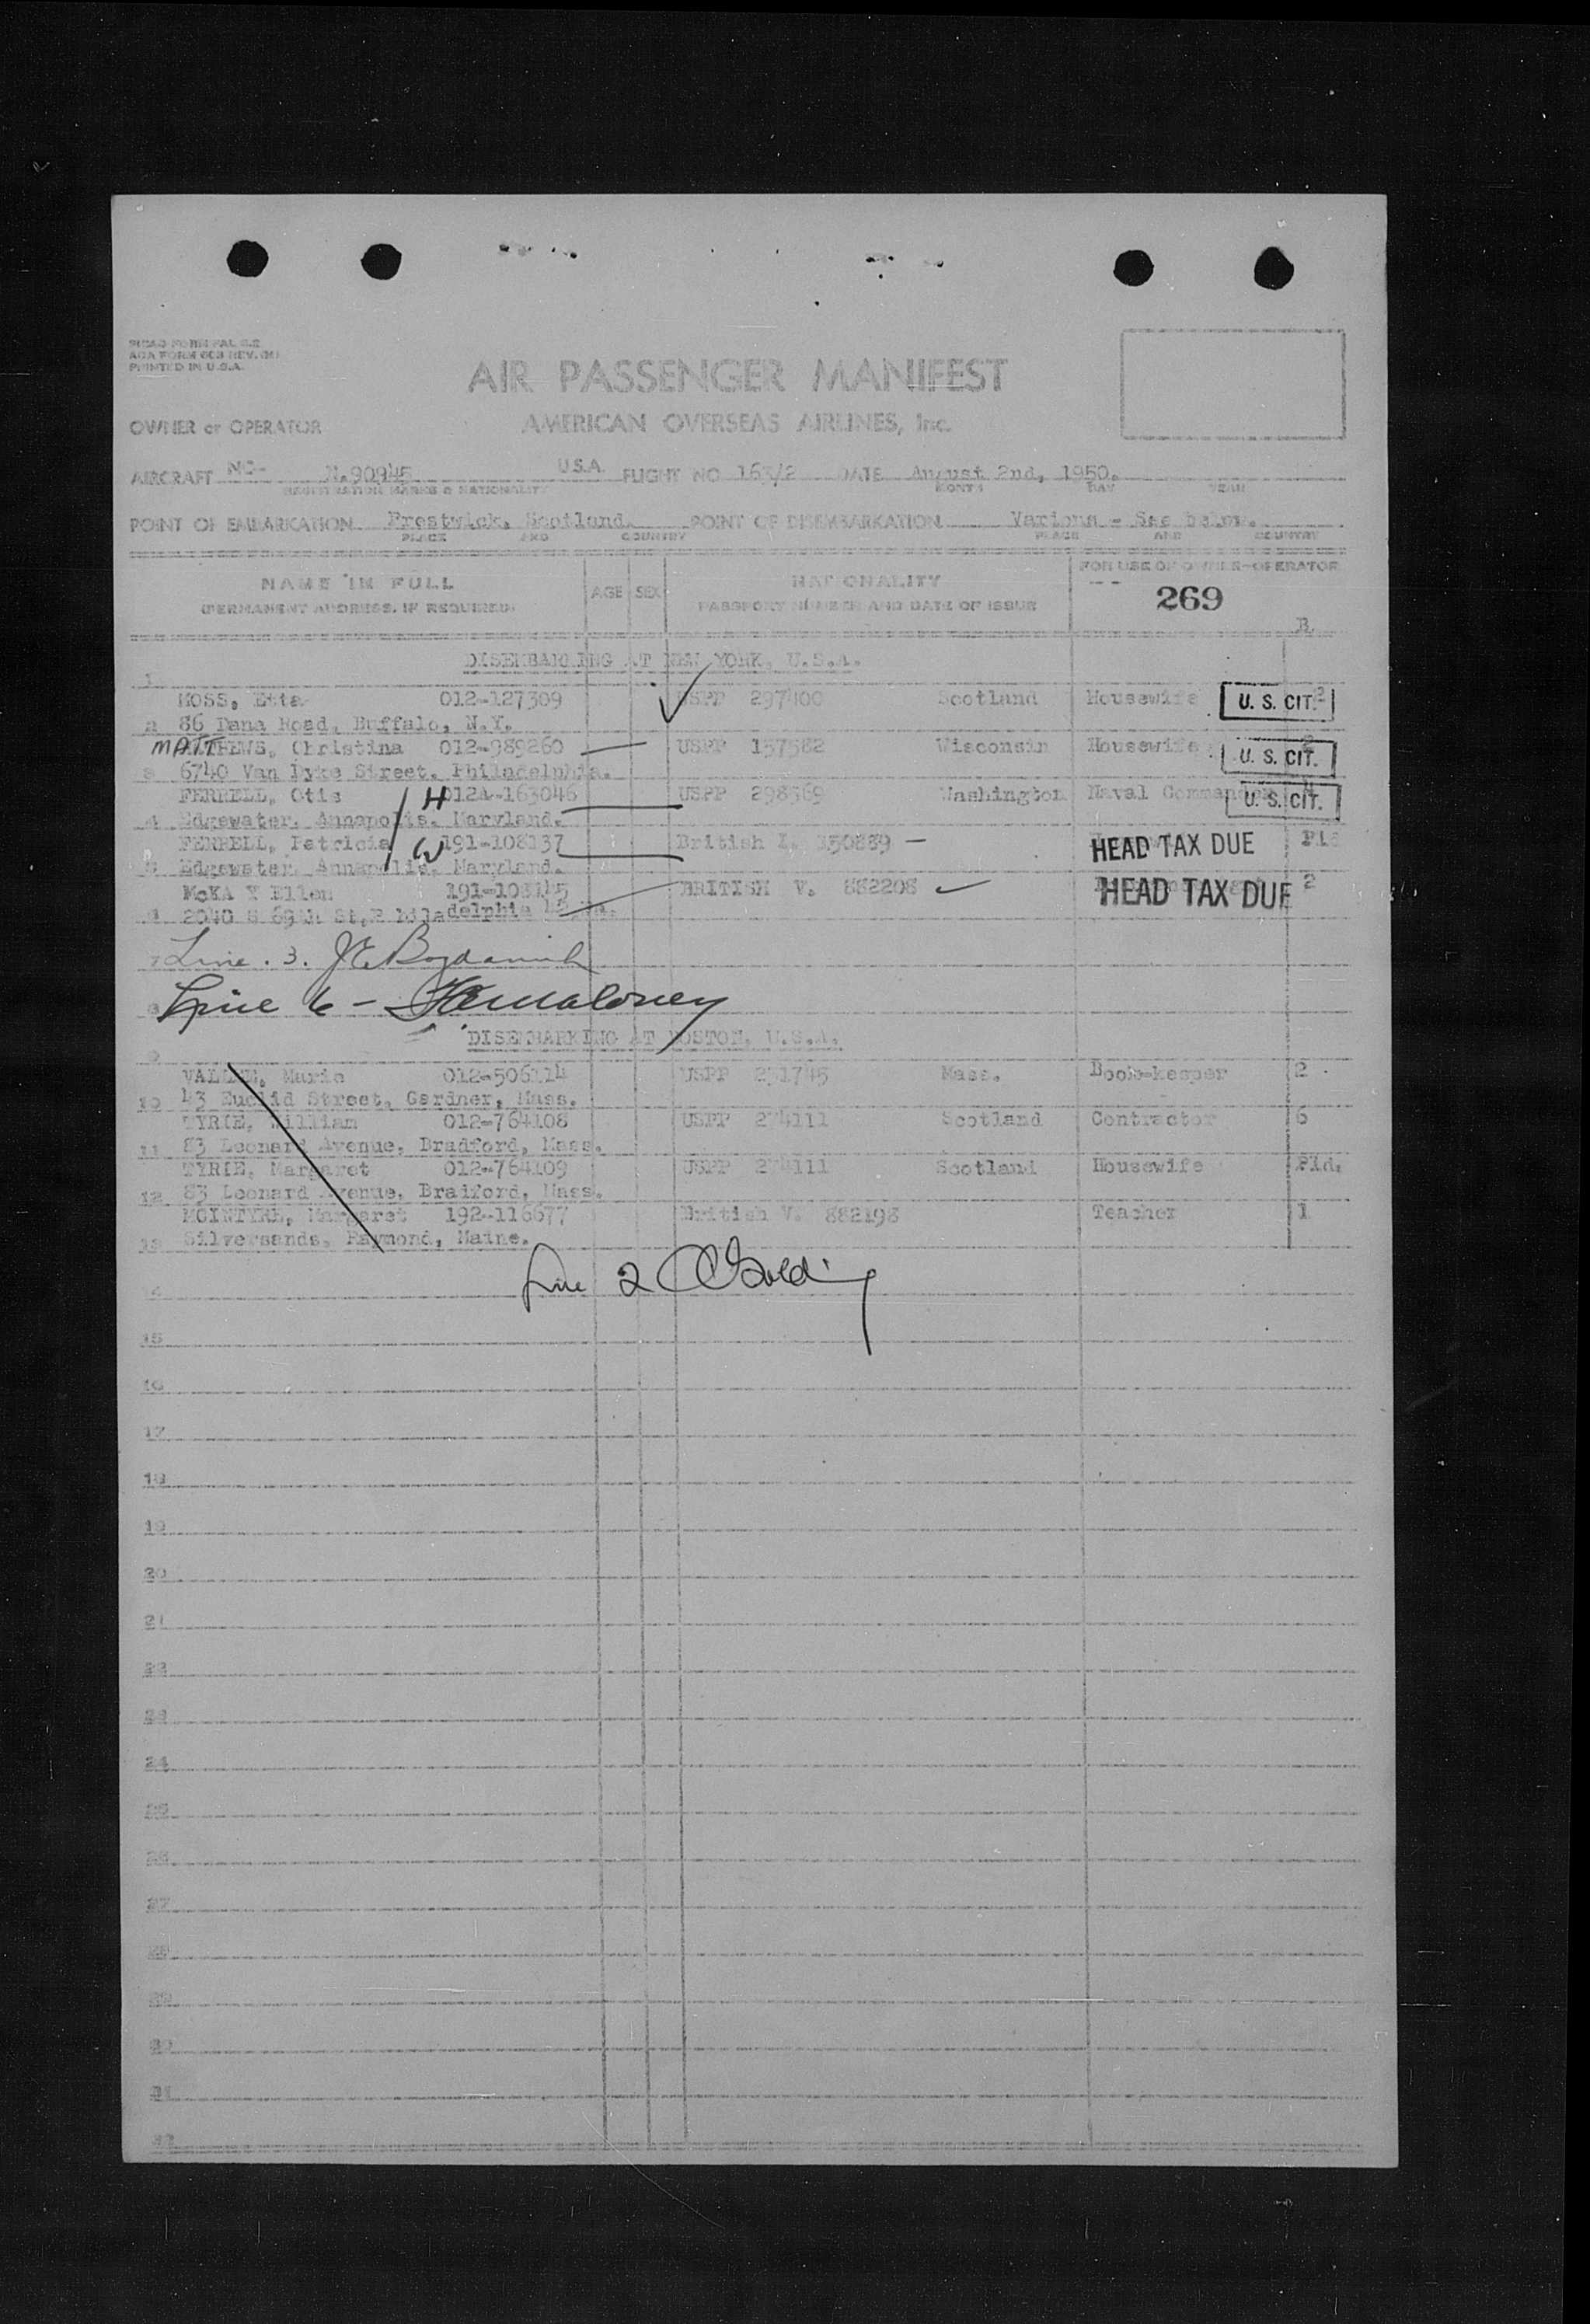 PRINTED IN U.S.A.
AIR PASSENGER MANIFEST
OWNER or OPERATOR AMERICAN OVERSEAS AIRLINES, Inc.
AIRCRAFT NC- N.90945 U.S.A. FLIGHT NO 163/2 DATE August 2nd, 1950.
REGISTRATION MARKS & NATIONALITY MONTH DAY YEAR
POINT OF EMBARKATION Prestwick, Scotland. POINT OF DISEMBARKATION Various - See below.
PLACE AND COUNTRY PLACE AND COUNTRY
NAME IN FULL AGE SEX NATIONALITY FOR USE OF OWNER-OPERATOR
(PERMANENT ADDRESS, IF REQUIRED) PASSPORT NUMBER AND DATE OF ISSUE 269
B.
DISEMBARKING AT NEW YORK, U.S.A.
1
MOSS, Etta 012-127309 USPP 297400 Scotland Housewife U. S. CIT. 2
2 86 Dana Road, Buffalo, N.Y.
MATTHEWS, Christina 012-989260 USPP 157582 Wisconsin Housewife U. S. CIT.
3 6740 Van Dyke Street, Philadelphia.
FERRELL, Otis H 012A-163046 USPP 298369 Washington Naval Commander U. S. CIT.
4 Edgewater, Annapolis, Maryland.
FERRELL, Patricia W 191-108137 British I. 150889 HEAD TAX DUE
5 Edgewater, Annapolis, Maryland.
McKAY Ellen 191-108145 BRITISH V. 882208 HEAD TAX DUE 2
2040 S 69th St, Philadelphia 42 Pa.
7 Line . 3.
8 Line 6 - Maloney
DISEMBARKING AT BOSTON, U.S.A.
9
Marie 012-506114 USPP 251745 Mass. Book-keeper 2
10 43 Euclid Street, Gardner, Mass.
TYRIE, William 012-764108 USPP 274111 Scotland Contractor 6
11 83 Leonard Avenue, Bradford, Mass.
TYRIE, Margaret 012-764109 USPP 274111 Scotland Housewife Pld.
12 83 Leonard Avenue, Bradford, Mass.
MCINTYRE, Margaret 192-116677 British V. 882198 Teacher 1
13 Silversands, Raymond, Maine.
Line 2
14
15
16
17
18
19
20
21
22
23
24
25
26
27
28
29
30
31
32